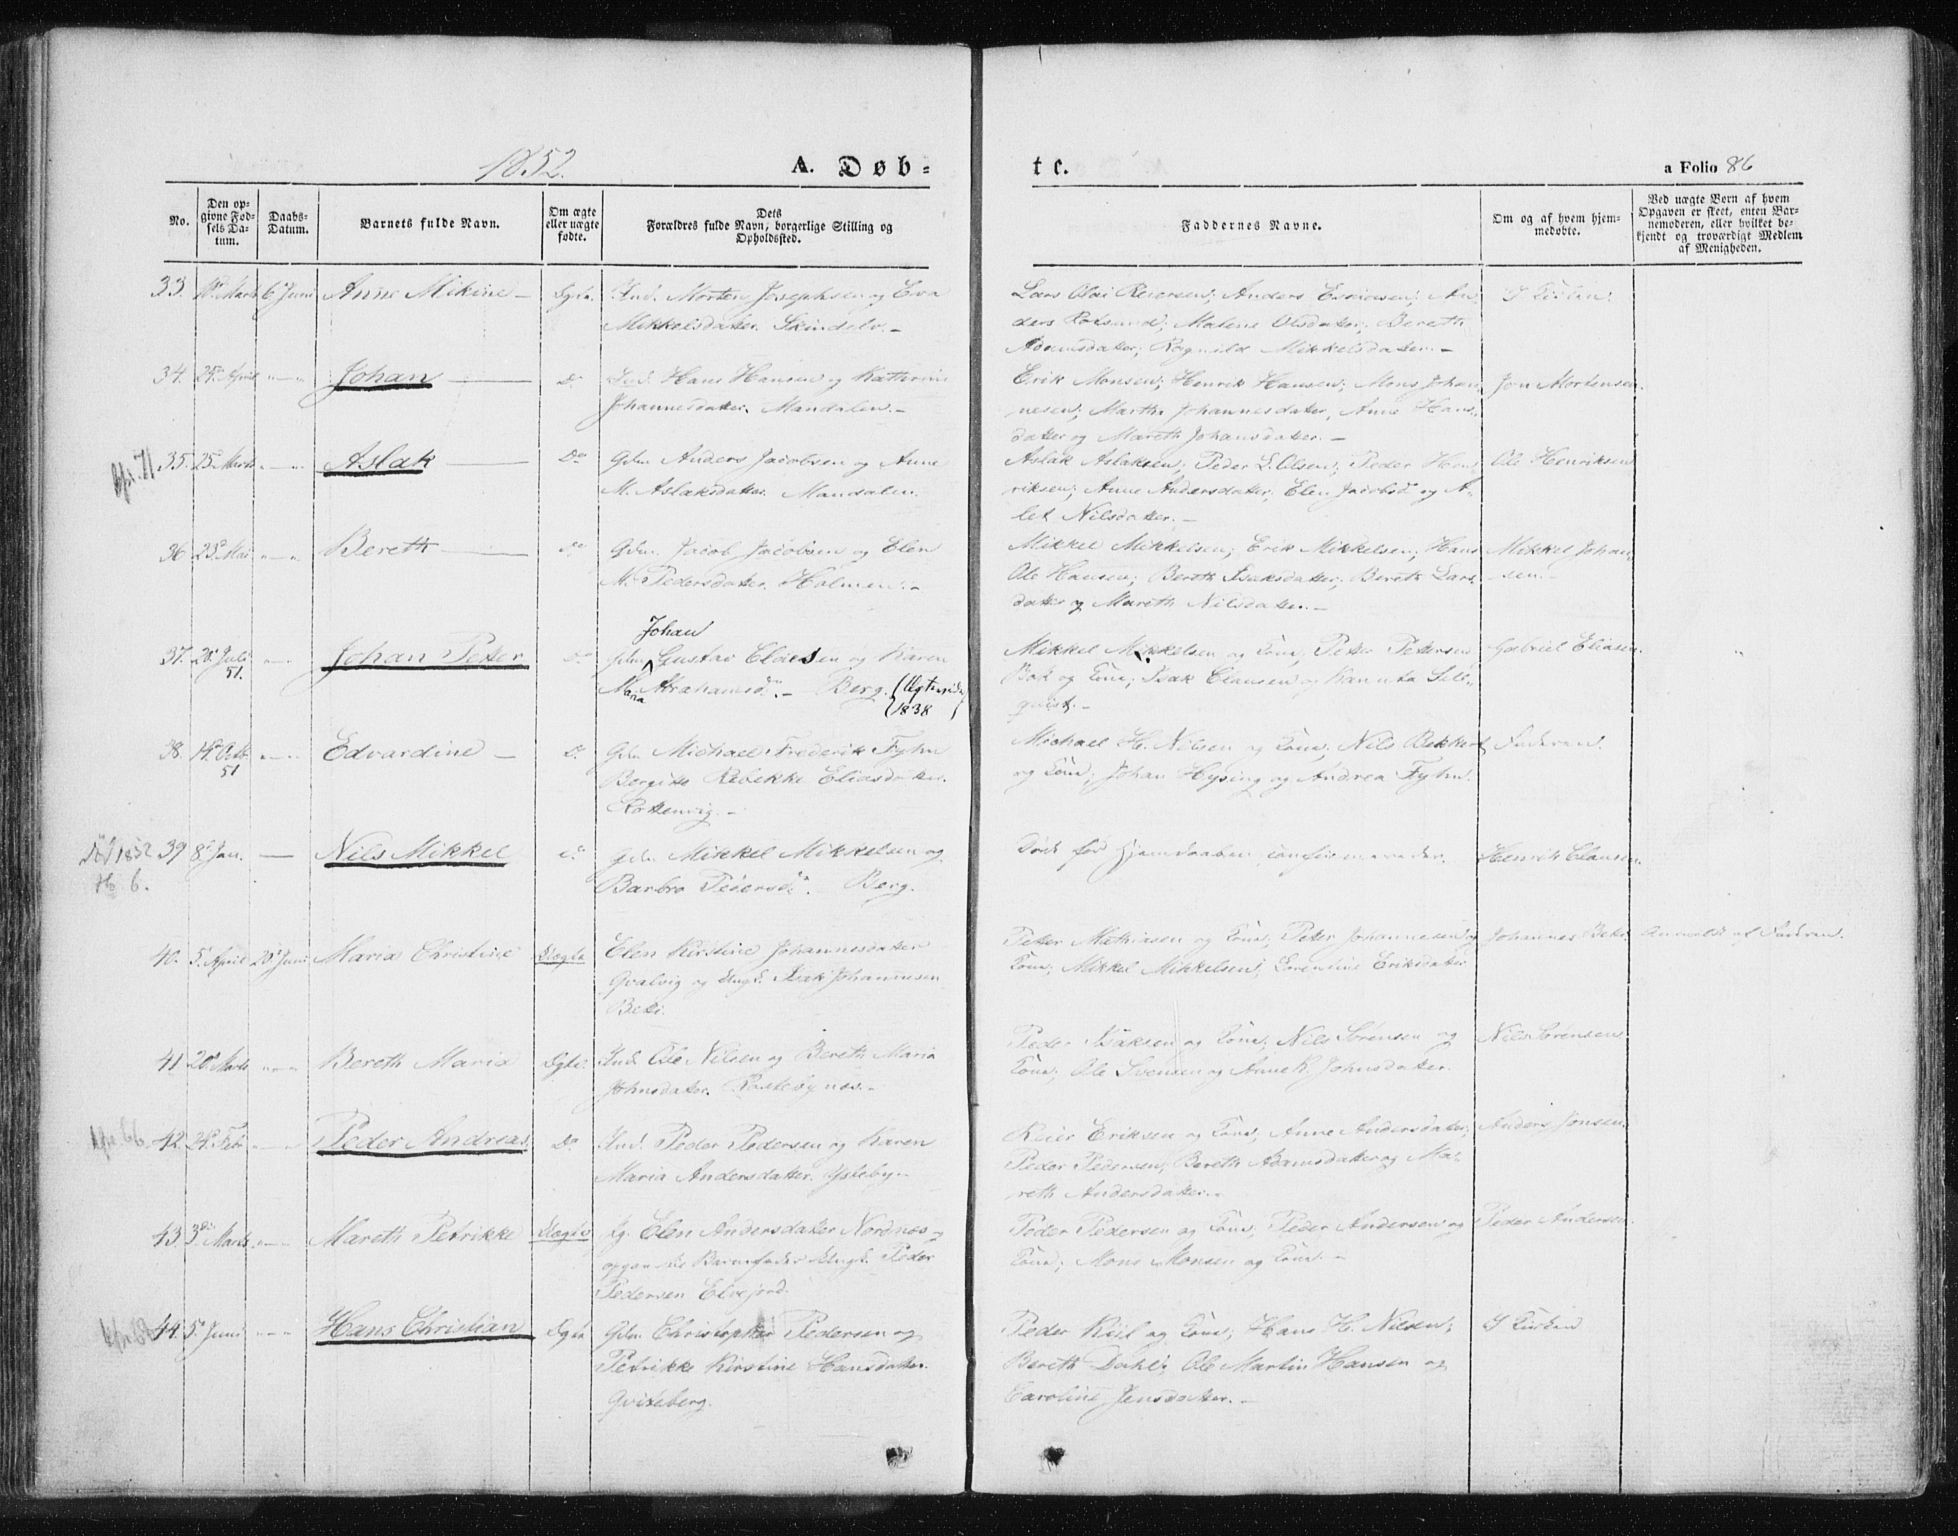 1852.
A. Døb-
te.
a Folio 86
No.
Den op-
givne Fød-
sels Da-
tum.
Daabs-
Datum.
Barnets fulde Navn.
Om ægte
eller uægte
fødte.
Dets
Forældres fulde Navn, borgerlige Stilling og
Opholdssted.
Faddernes Navne.
Om og af hvem hjem-
medøbte.
Ved uægte Børn af hvem
Opgaven er skeet, enten Bar-
nemoderen, eller hvilket be-
kjendt og troværdigt Medlem
af Menigheden.
33. Marts 6 Juni Anne Mikine — Ægte. Ind. Morten Josephsen og Eva
Mikkelsdatter. Skindelv. —
Lars Olai Reiersen; Anders Esaiasen; An-
ders Rotsund; Malene Olsdatter; Bereth
Adamsdatter; Ragnild Mikkelsdatter. —
34. 24 April " — " Johan — Do Ind. Hans Hansen og Kathrine
Johannesdatter. Mandalen. —
Erik Monsen; Henrik Hansen; Mons Johan-
nesen; Martha Johannesdatter, Anne Hans-
datter og Mareth Johansdatter. —
Jon Mortensen.
71
35. 25 Marts " — " Aslak — Do Gdm. Anders Jacobsen og Anne
M. Aslaksdatter. Mandalen.
Aslak Aslaksen; Peder L. Olsen; Peder Hen-
riksen; Anne Andersdatter; Elen Jacobsd og A-
let Nilsdatter. —
Ole Henriksen
36 23 Mai " — " Bereth — Do Gdm. Jacob Jacobsen og Elen
M. Pedersdatter. Holmen. —
Mikkel Mikkelsen; Erik Mikkelsen; Hans
Ole Hansen; Bereth Isaksdatter; Bereth Lars-
datter og Mareth Nilsdatter. —
Mikkel Johan-
sen. —
Johan
37. 20 Juli " — " Johan Peter Do Gdm Gustav Claesen og Karen
51.
Maria Abrahamsd. — Berg.
1838
Mikkel Mikkelsen og Kone, Peter Petersen
Bak og Kone; Isak Clausen og Kanuta Sell-
quist. —
Gabriel Eliasen.
38. 14 Octb " — " Edvardine — Do Gdm Michael Frederik Fyhn
51
Bergitte Rebekke Eliasdatter.
Rottenvig. —
Michael H. Nilsen og Kone, Nils Bekkert
og Kone; Johan Hysing og Andrea Fyhn.
Faderen.
Død 1852
No 6.
39 8 Jan. — Nils Mikkel Do Gdm. Mikkel Mikkelsen og
Barbro Pedersd. — Berg.
Døde før Hjemdaaben
Henrik Clausen.
40. 5 April 20 Juni Maria Christine Uægte Elen Kirstine Johannesdatter
Qvalvig og Ungk. Isak Johannesen
Beki.
Peter Mathiasen og Kone; Peter Johannesen og
Kone; Mikkel Mikkelsen; Lorentine Eriksdatter
Johannes Beki
Anmeldt af Faderen.
41 20 Marts " — " Bereth Maria Ægte. Ind. Ole Nilsen og Bereth Maria
Johnsdatter.
Peder Isaksen og Kone, Nils Sørensen og
Kone; Ole Svensen og Anne K. Johnsdatter.
Nils Sørensen.
66
42. 24 Feb " — " Peder Andreas. Do Ind. Peder Pedersen og Karen
Maria Andersdatter. Ysteby. —
Reier Eriksen og Kone, Anne Andersdatter;
Peder Pedersen; Bereth Adamsdatter og Ma-
reth Andersdatter. —
Anders Jonsen.
43. 3 Marts " — " Mareth Petrikke Uægte Pg. Elen Andersdatter Nordnes og
opgav til Barnefader Ungk. Peder
Pedersen Elvejord.
Peder Pedersen og Kone; Peder Andersen og
Kone; Mons Monsen og Kone —
Peder Andersen.
44. 5 Juni " — " Hans Christian Ægte Gdm. Christopher Pedersen og
Petrikke Kirstine Hansdatter.
Qviteberg.
Peder Kiil og Kone; Hans H. Nilsen;
Bereth Dahl; Ole Martin Hansen og
Caroline Jensdatter. —
I Kirken